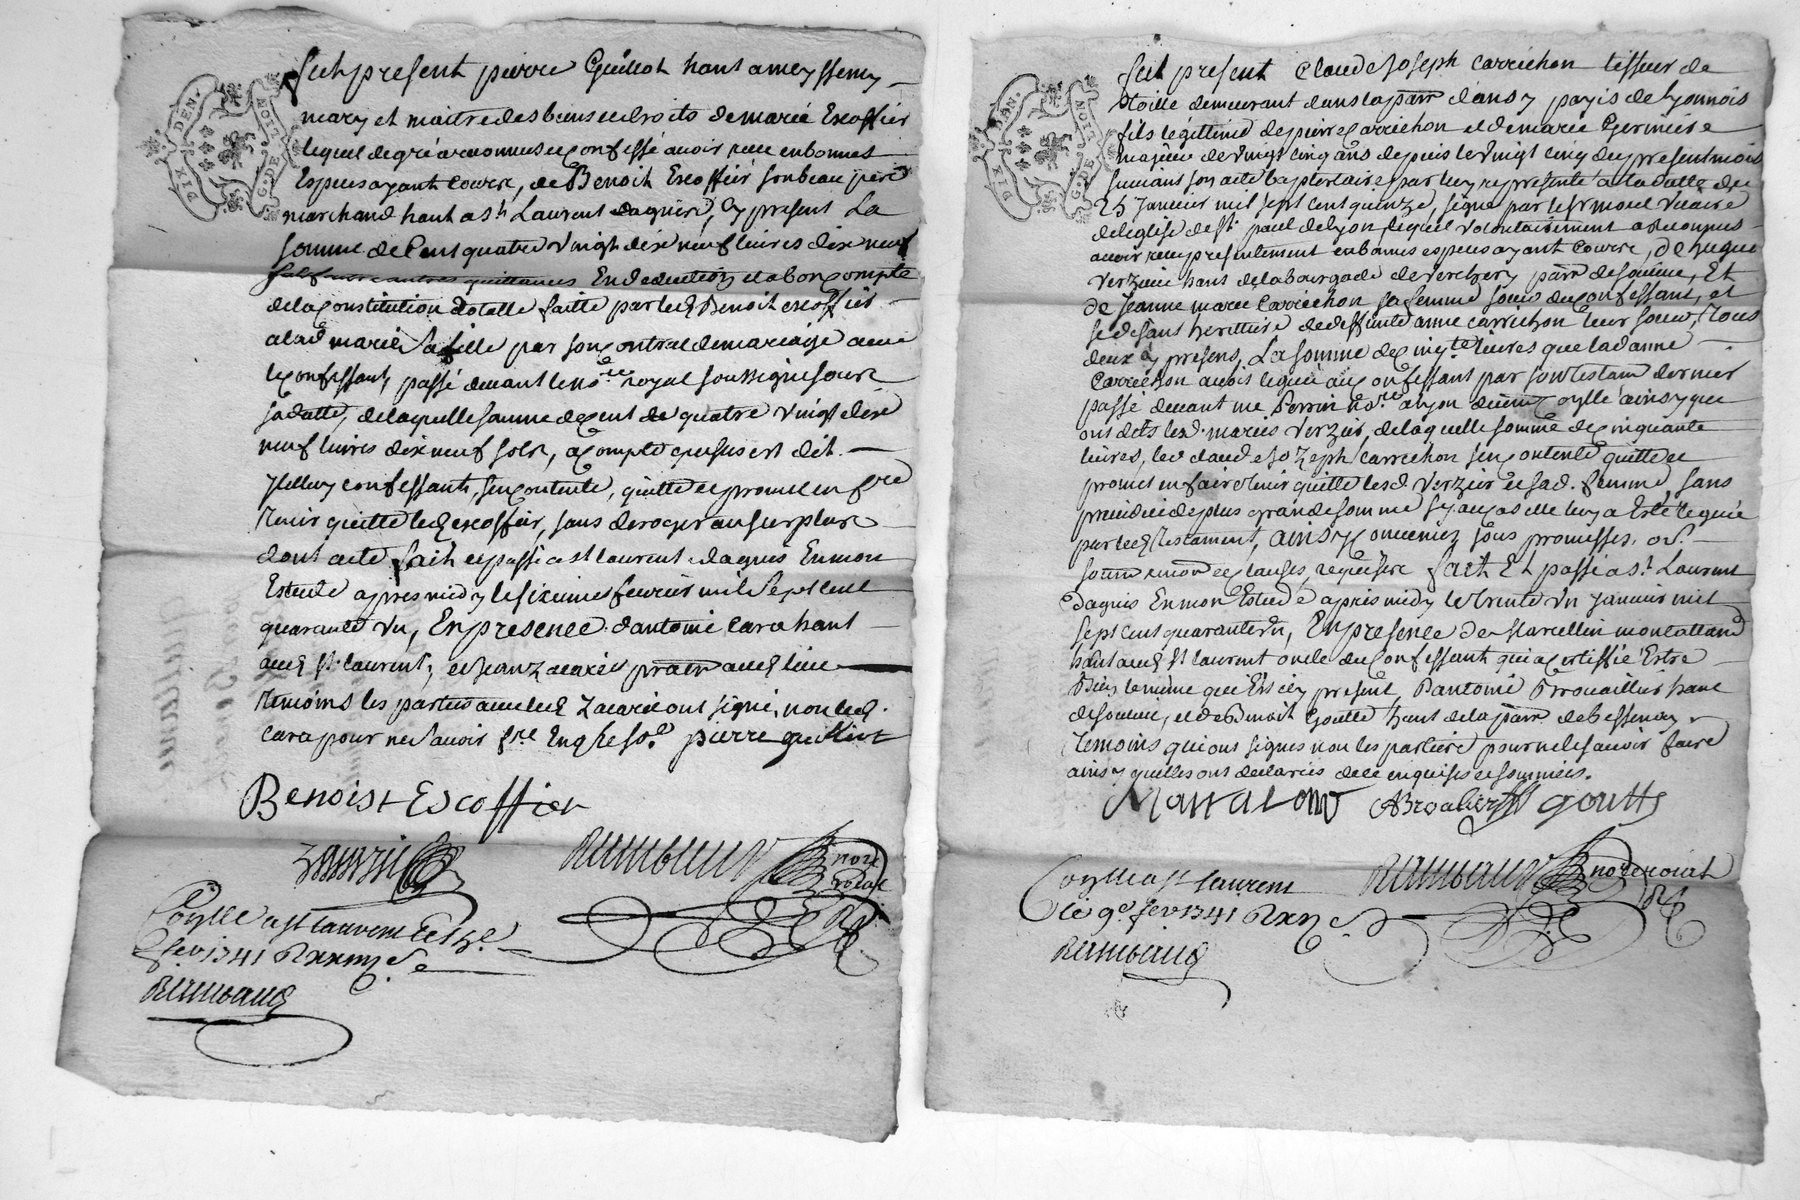 DIX DEN.
G. DE LION
fut present pierre Guillot hant a meyssemy
mary et maitre des biens et droits de marie Escoffier
lequel de gré a reconnu et confessé avoir receu en bonnes
Especes ayant Cours, de Benoit Escoffier son beau pere
marchand hant a st Laurent dagnier, cy present La
somme de Cent quatre vingt dix neuf livres dix neuf
En deduction et a bon compte
de la Constitution dotalle faitte par led Benoit escoffier
a lad marie sa fille par son contract de mariage avec
le confessant, passé devant le nore royal soussigné sour
sa datte, de laquelle somme de cent de quatre vingt dix
neuf livres dix neuf sols, a compte que sus est dit
Iceluy confessant, sen contente, quitte et promet en fre
tenir quitte led escoffier, sans deroger au surplus
dont acte fait et passé a st laurent dagnis En mon
Estude apres midy le sixieme fevrier mil sept cent
quarante un, En presence dantoine Cara hant
aud st laurent, et Jean zacarie pratn aud lieu
temoins les parties avec led Zacarie ont signé, non led
Cara pour ne savoir fre Enq he sod. pierre guilliot
BENOIST ESCOFFier
zacarie Raimbaud nore royal
Coylle a st laurent le 7e
fev 1741 R xxiiij s.
Raimbaud
DIX DEN.
G. DE LION
fut present Claude Joseph Carrichon tisseur de
toille demeurant dans la parr dansy payis de lyonnois
fils légittime de pierre Carrichon et de marie Germiere
majeur de vingt cinq ans depuis le vingt cinq du present mois
suivant son acte baptistaire par luy representé a la datte du
25 Janvier mil sept cent quinze, signé par le sr morel vicaire
de leglise de st paul de lyon lequel volontairement a reconnus
avoir receu presentement en bonnes especes ayant Cours, de hugue
Verzier hant de la bourgade de Verchery parr de soucieu, Et
de Jeanne marie Carrichon sa femme soeur du confessant, et
se disant heritiere de deffunte anne carrichon leur soeur, tous
deux cy presens, La somme de cinqte livres que lad anne
Carrichon avoit legué au confessant par son testam dernier
passé devant me Perrin nore a lyon deument coylle ainsy que
ont dits lesd. mariés Verzier, de laquelle somme de cinquante
livres, led claude Jozeph Carrichon sen contente quitte et
promet en faire tenir quitte lesd. Verzier et sad. femme, sans
prejudice de plus grande somme sy aucas elle luy a Esté leguée
par led testament, ainsy Convenu, sous promesses, ob.
soum renon et clauses, requisere fait Et passé a st Laurent
dagnis En mon Estude apres midy le trente un Janvier mil
sept cent quarante un, En presence de Marcellin montalland
hant aud st laurent oncle du confessant qui a certiffié Estre
Bien le même que Est icy present, Dantoine Brouaillier hant
de soucieu, et de Benoit Goutte hant de la parr de bessenay
temoins qui ont signes non les parties pour ne le savoir faire
ainsy quelles ont declarées de ce enquises et sommées.
Montaland ABroalier goutte
Coylle a st laurent Raimbaud nore roial
le 9e fev 1741 R xij s.
Raimbaud